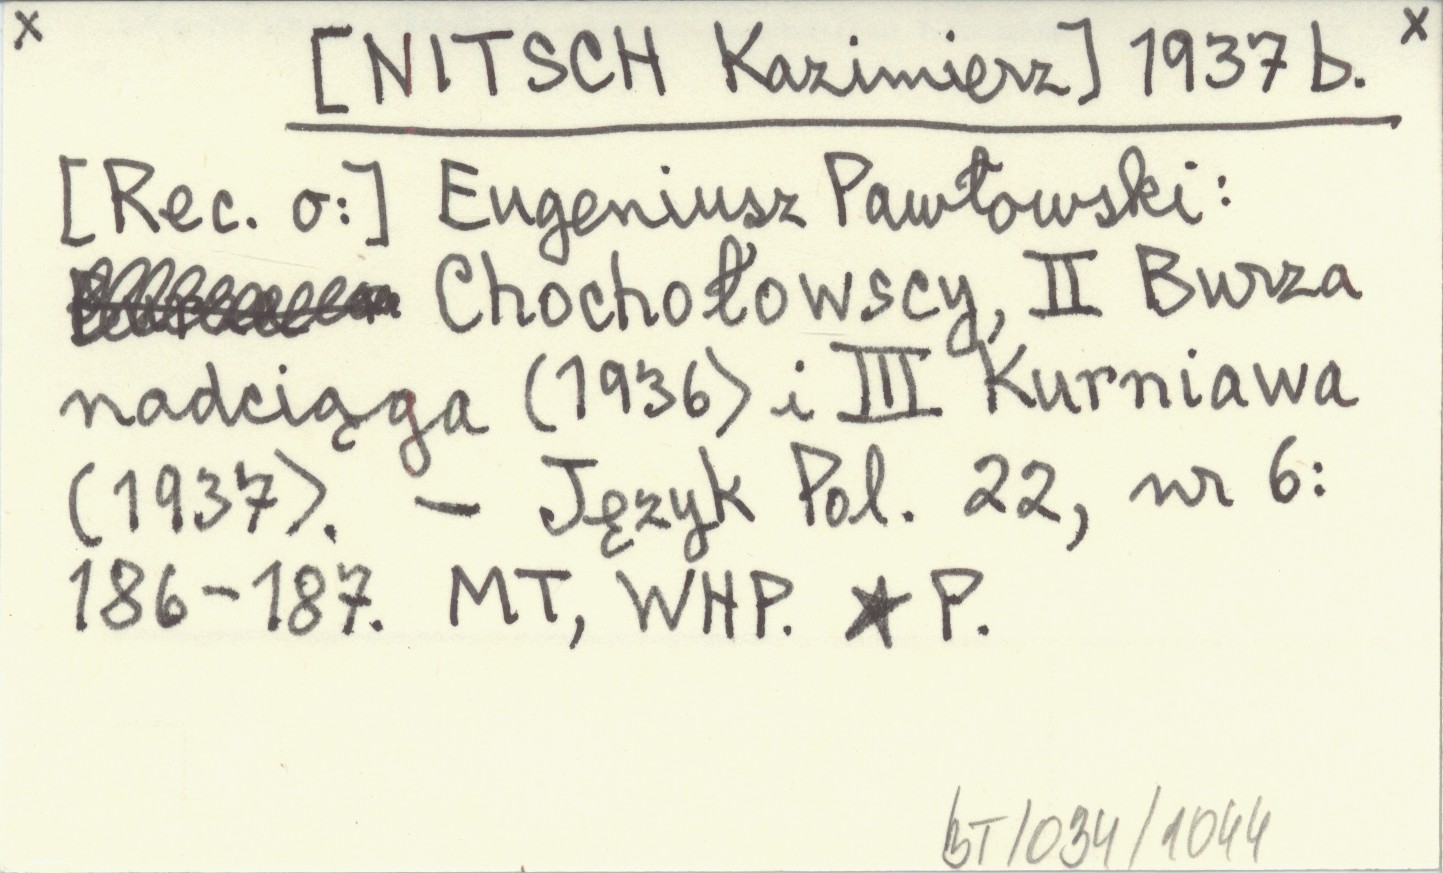 x [NITSCH Kazimierz] 1937 b. x
[Rec. o:] Eugeniusz Pawłowski:
Chochołowscy, II Burza
nadciąga (1936) i III Kurniawa
(1937). – Język Pol. 22, nr 6:
186-187. MT, WHP. ★ P.
BT/034/1044